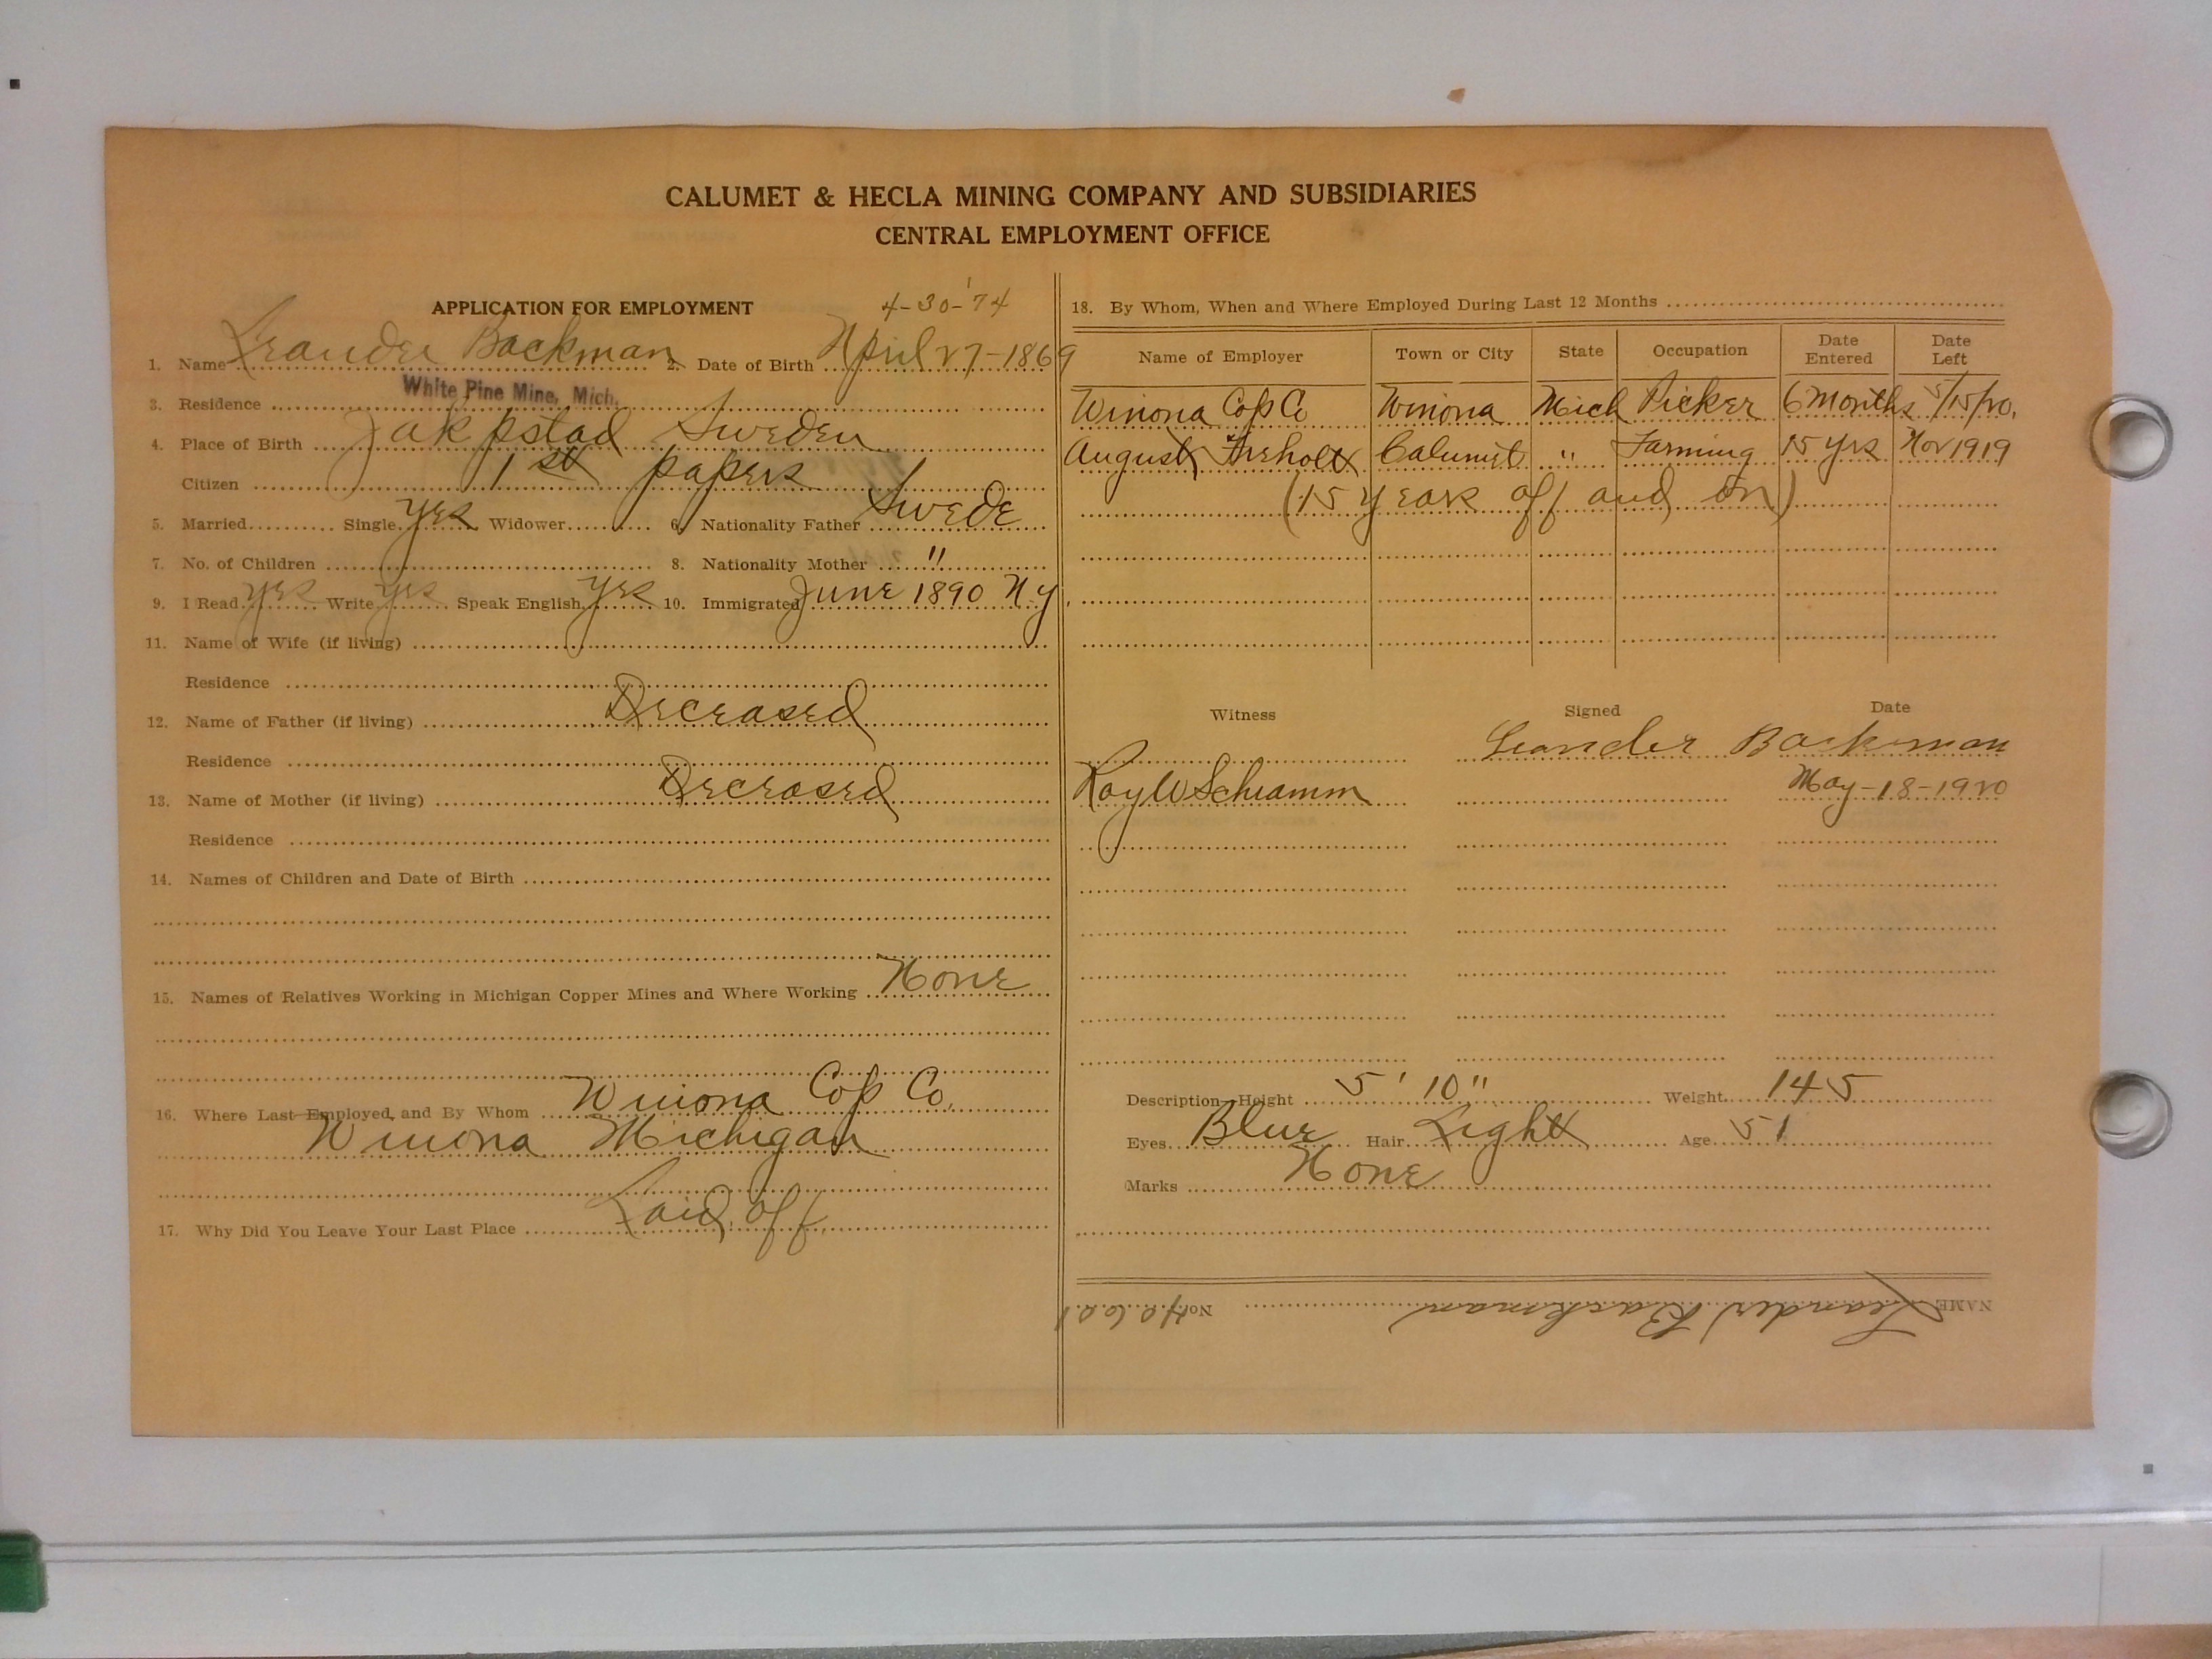 CALUMET & HECLA MINING COMPANY AND SUBSIDIARIES
CENTRAL EMPLOYMENT OFFICE
APPLICATION FOR EMPLOYMENT 4-30-'74
1. Name Leander Backman 2. Date of Birth April 27-1869
White Pine Mine, Mich.
3. Residence
4. Place of Birth Jakpstad Sweden
Citizen 1st papers
5. Married Single yes Widower 6. Nationality Father Swede
7. No. of Children 8. Nationality Mother "
9. I Read yes Write yes Speak English yes 10. Immigrated June 1890 N.y.
11. Name of Wife (if living)
Residence
12. Name of Father (if living) Deceased
Residence
13. Name of Mother (if living) Deceased
Residence
14. Names of Children and Date of Birth
15. Names of Relatives Working in Michigan Copper Mines and Where Working None
16. Where Last Employed, and By Whom Winona Cop Co.
Winona Michigan
17. Why Did You Leave Your Last Place Laid off
18. By Whom, When and Where Employed During Last 12 Months
Name of Employer Town or City State Occupation Date Entered Date Left
Winona Cop Co Winona Mich Picker 6 Months 5/15/20.
August Calumet " Farming 15 yrs Nov 1919
(15 years off and on)
Witness Signed Date
Leander Backman
Roy W Schramm May-18-1920
Description-Height 5' 10" Weight 145
Eyes Blue Hair Light Age 51
Marks None
NAME Leander Backman No.